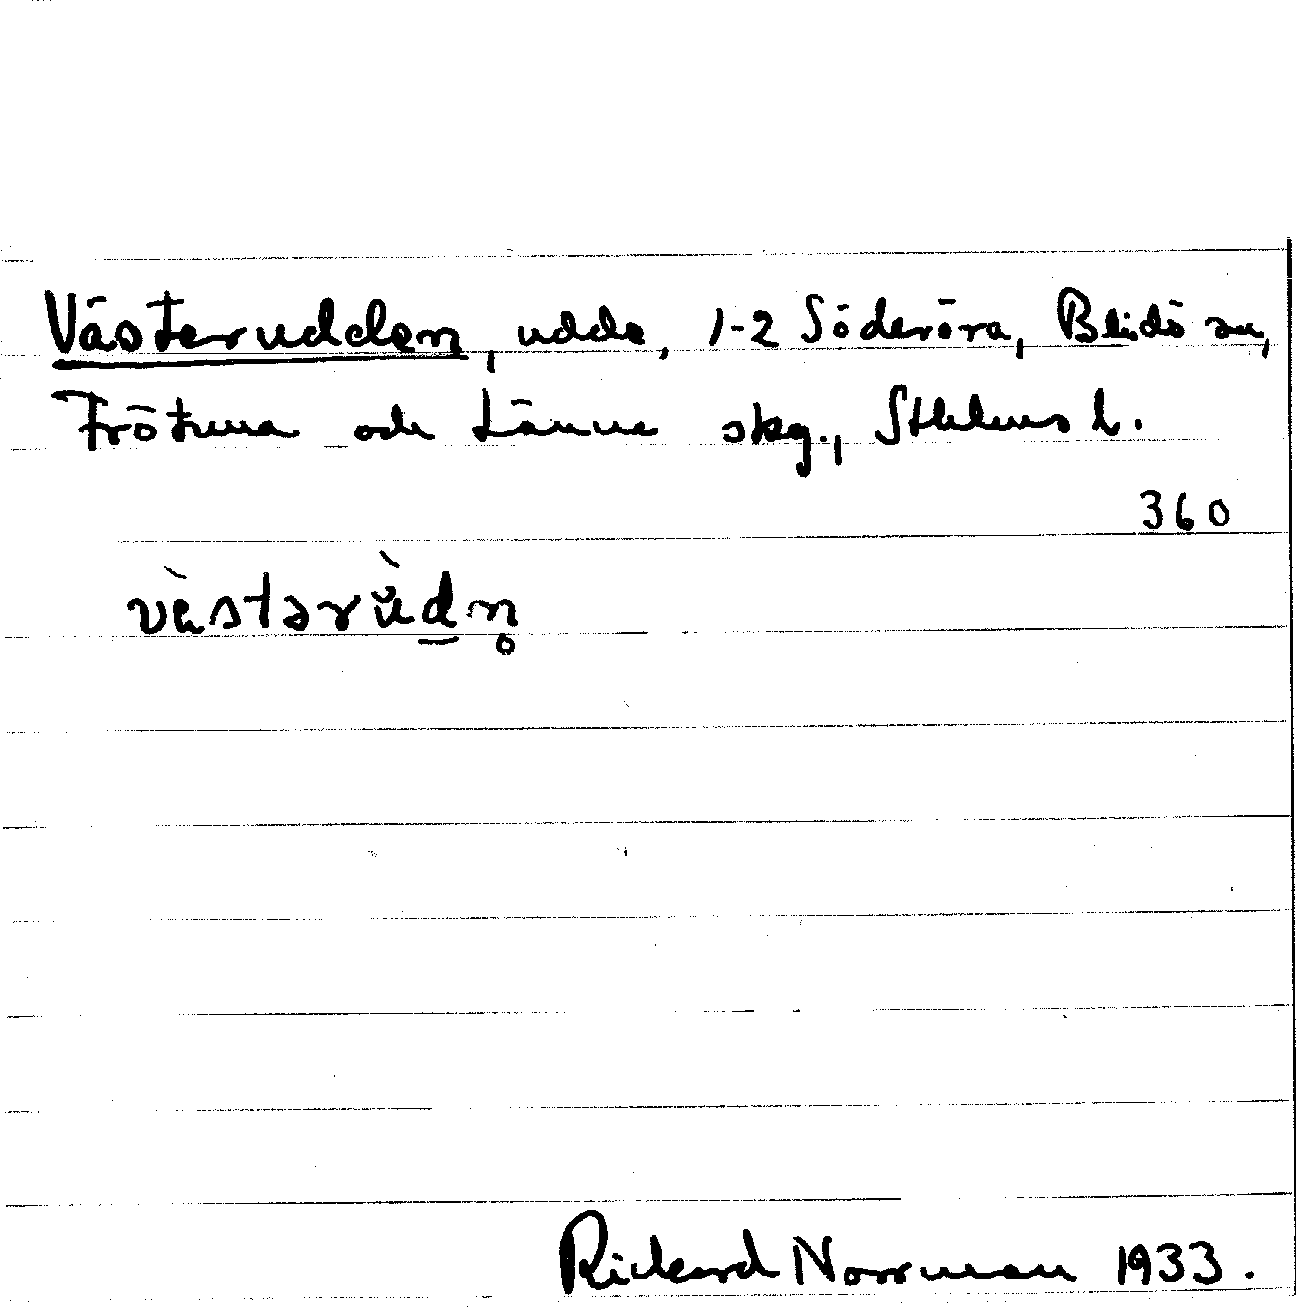 Västerudden, udde, 1-2 Söderöra, Blidö sn,
Frötuna och Länna skg., Sthlms l.
360
vàstərùd̲n̥
Rickard Norrman 1933.